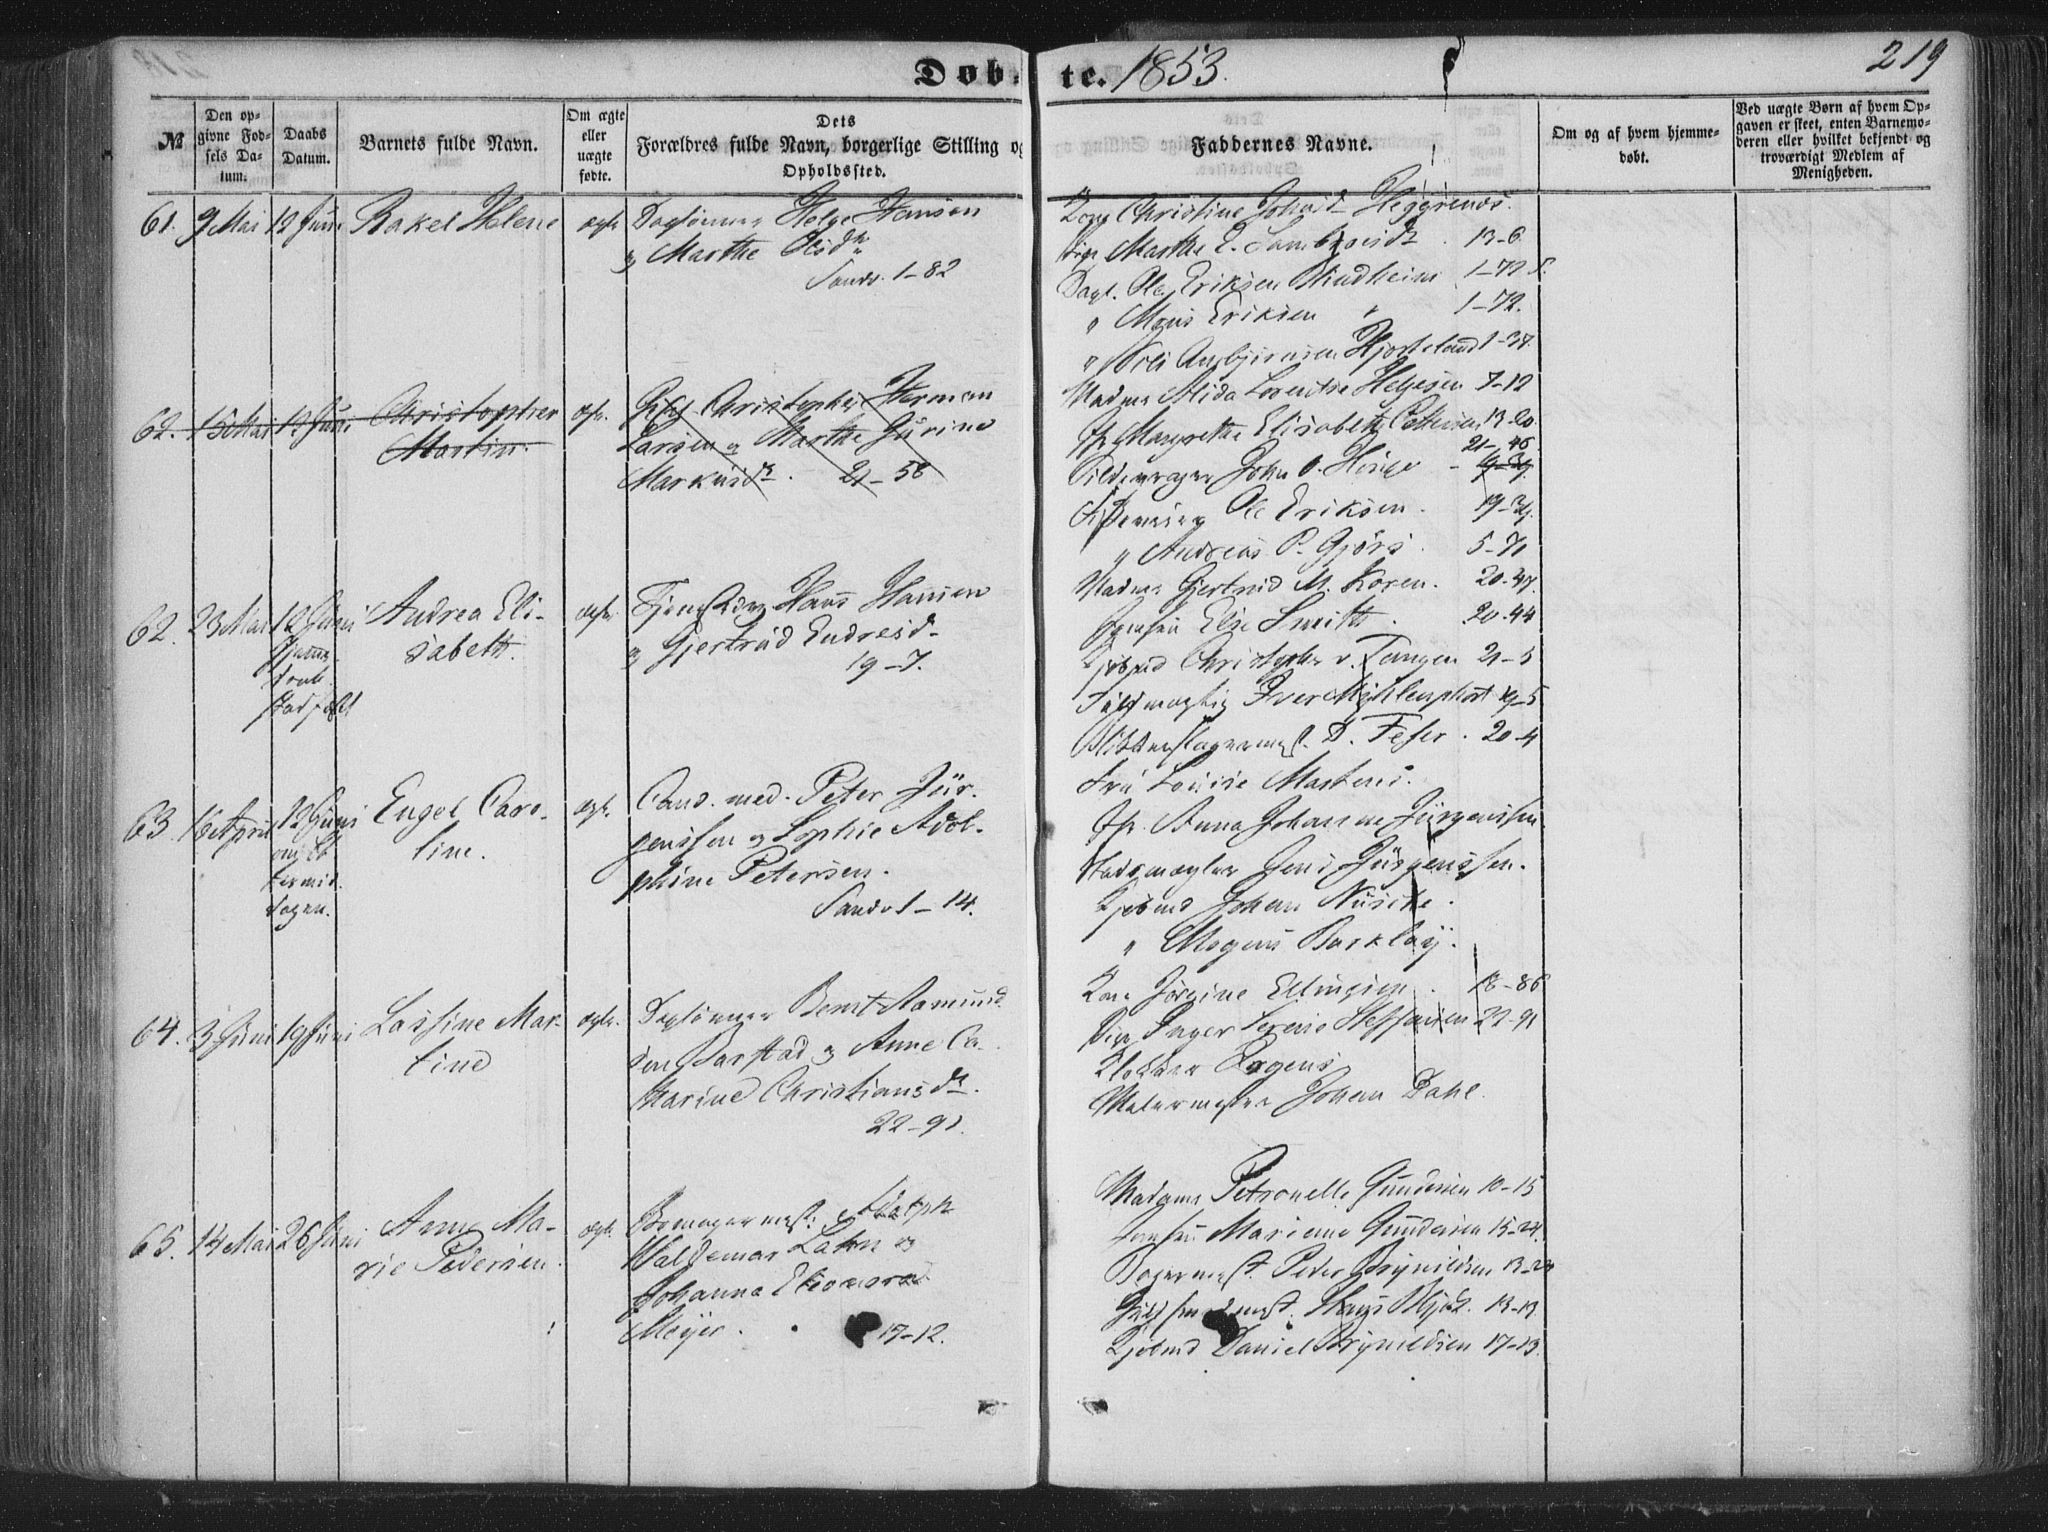 Døb-
te. 1853.
219
№
Den op-
givne Fød-
sels Da-
tum.
Daabs
Datum.
Barnets fulde Navn.
Om ægte
eller
uægte
fødte.
Dets
Forældres fulde Navn, borgerlige Stilling og
Opholdssted.
Faddernes Navne.
Om og af hvem hjemme-
døbt.
Ved uægte Børn af hvem Op-
gaven er skeet, enten Barnemo-
deren eller hvilket bekjendt og
troværdigt Medlem af
Menigheden.
61. 9 Mai 12 Juni Rakel Helene ægte Daglønner Helge Hansen
og Marthe Olsdr
Sandv. 1-82
Kone Christine Heggrenæs.
Pige Marthe E. 13-6
Dagl. Ole Eriksen Mudheim 1-72
" Mons Eriksen " 1-72.
" Hjorteland 1-37.
62. 15 Mai 12 Juni Christopher
Martin.
ægte. Christopher Herman
Larsen og Marthe Gurine
Markusdr. 21-58
Madme Alida Lorentze Helgesen 7-12
Jfr. Margrethe Elisabeth Pettersen 13-20
21-46
John O. 9-39.
Ole Eriksen. 19-34.
" Andreas P. Gjørs. 5-70
62. 23 Mai 12 Juni
Andrea Eli-
sabeth.
ægte. Hans Hansen
og Gjertrud Endresd.
19-7.
Madme Gjertrud M. Koren. 20-47.
Jomfru Elise Smith. 20-44
Kjøbmd Christopher v. Tangen 21-5
Iver 19-5
D. Feser. 20-4
63. 16 April 12 Juni
Engel Caro-
line.
ægte. Cand. med. Peter Jür-
genssen og Sophie Adol-
phine Petersen.
Sandv 1-14.
Fru Louise Martens.
Jfr. Anna Johanne Jürgenssen
Stadsmægler Jens Jürgenssen.
Kjøbmd Johan
" Mogens Barklay.
64. 3 Juni 19 Juni Lassine Mar-
tine
ægte. Daglønner Bernt Aamund-
sen Barstad og Anne Ca-
tharine Christiansdr.
22-91.
Kone Jørgine Ellingsen. 18-86
Pige Inger Serine Steffensen 22-91
Klokker
Malermester Johan Dahl.
65. 14 Mai 26 Juni Anna Ma-
rie Pedersen.
ægte. Adolph
Waldemar Lahn og
Johanna Eleonora
Meyer. 17-12.
Madame Petronelle Gundersen 10-15
Jomfru Mariane Gundersen 15-24.
Bagermest. Peder Brynildsen 13-24
Hans 13-13.
Kjøbmd Daniel Brynildsen 17-13.